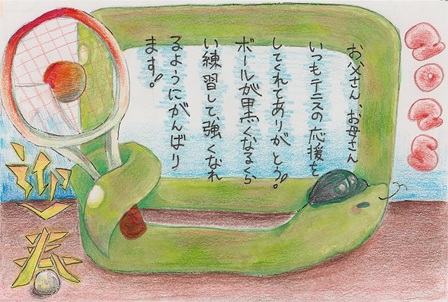 お父さん、お母さん
いつもテニスの応援を
してくれてありがとう!
ボールが黒くなるくら
い練習して、強くなれ
るようにがんばり
ます!
迎春